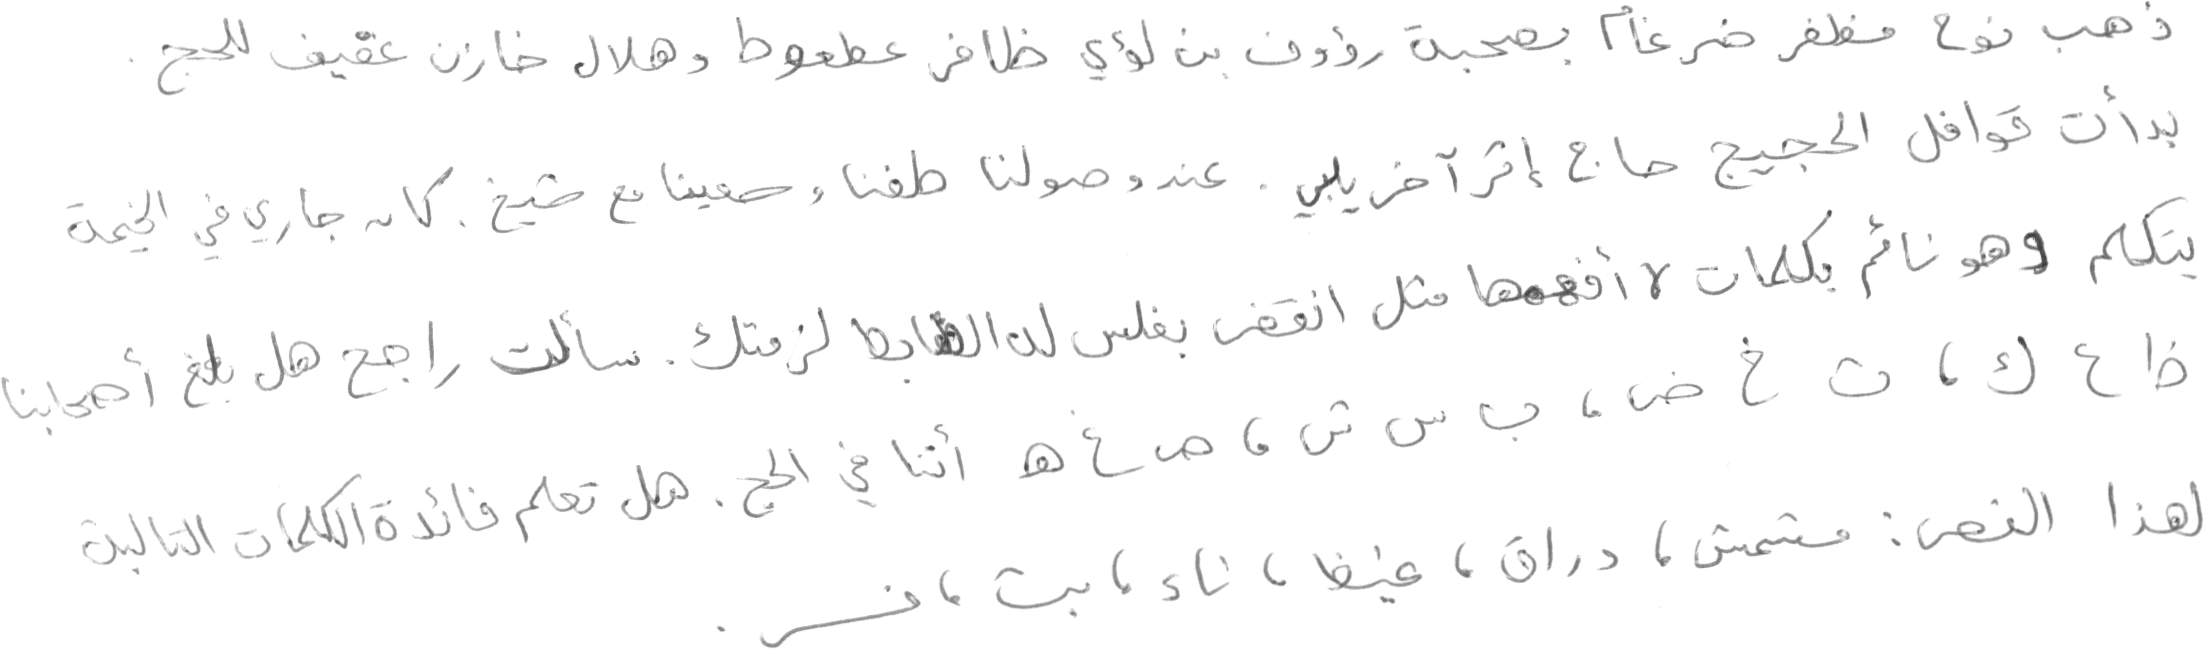 ذهب نوح مظفر ضرغام بصحبة رؤوف بن لؤي ظافر عطعوط وهلال خازن عفيف للحج .
بدأت قوافل الحجيج حاج إثر آخر يلبي . عند وصولنا طفنا وسعينا مع شيخ . كان جاري في الخيمة
يتكلم وهو نائم بكلمات لا أفهمها مثل انقض بفلس لدن الضابط لزمتك . سألت راجح هل بلغ أصحابنا
ظ ع ك ، ث خ ض ، ب س ش ، ص غ ه أننا في الحج . هل تعلم فائدة الكلمات التالية
لهذا النص : مشمش ، دراق ، غيظ ، ناء ، بث ، فسر .